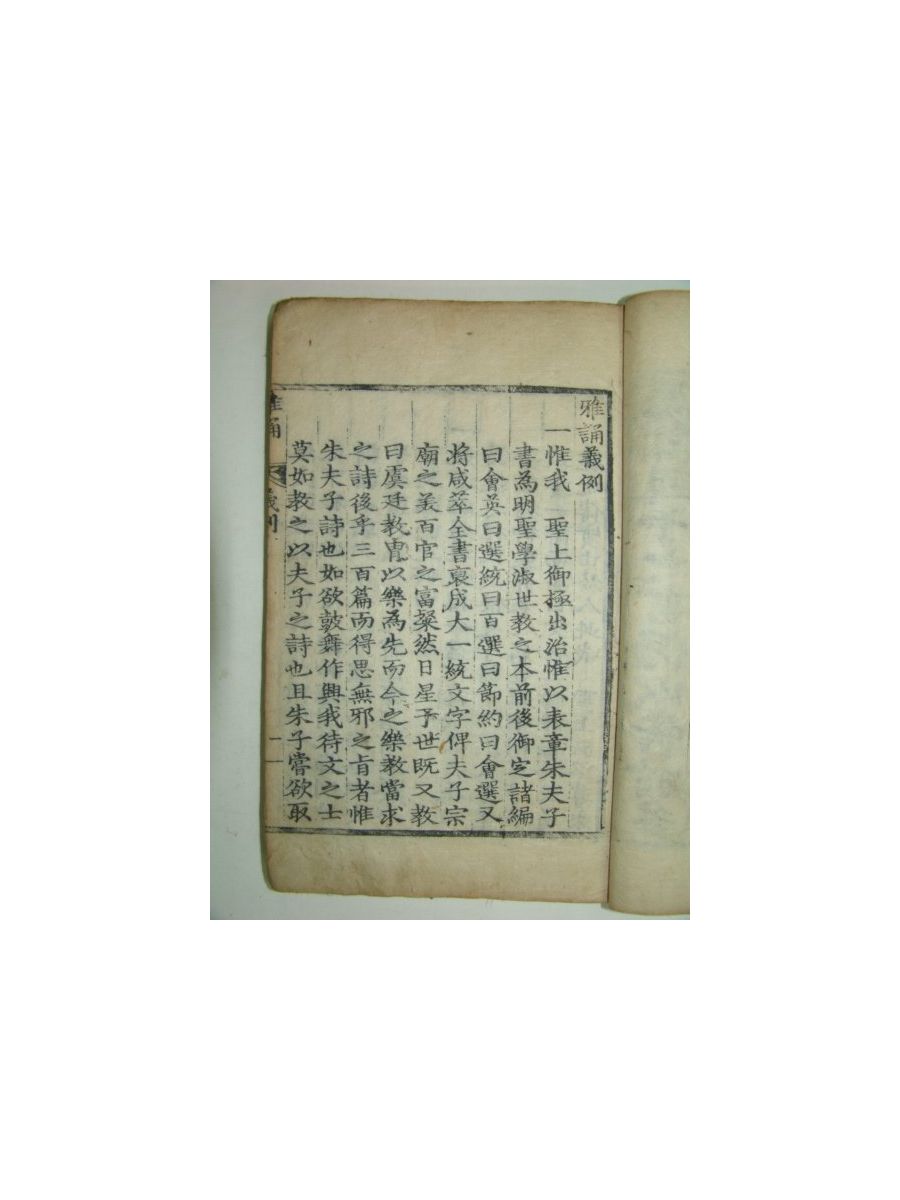 雅誦義例
一惟我 聖上御極出治惟以表章朱夫子
書為明聖學淑世教之本前後御定諸編
曰會英曰選統曰百選曰節約曰會選又
將咸萃全書裒成大一統文字俾夫子宗
廟之美百官之富粲然日星乎世既又教
曰虞廷教冑以樂為先而今之樂教當求
之詩後乎三百篇而得思無邪之旨者惟
朱夫子詩也如欲皷舞作興我待文之士
莫如教之以夫子之詩也且朱子嘗欲取
雅誦 義例 一